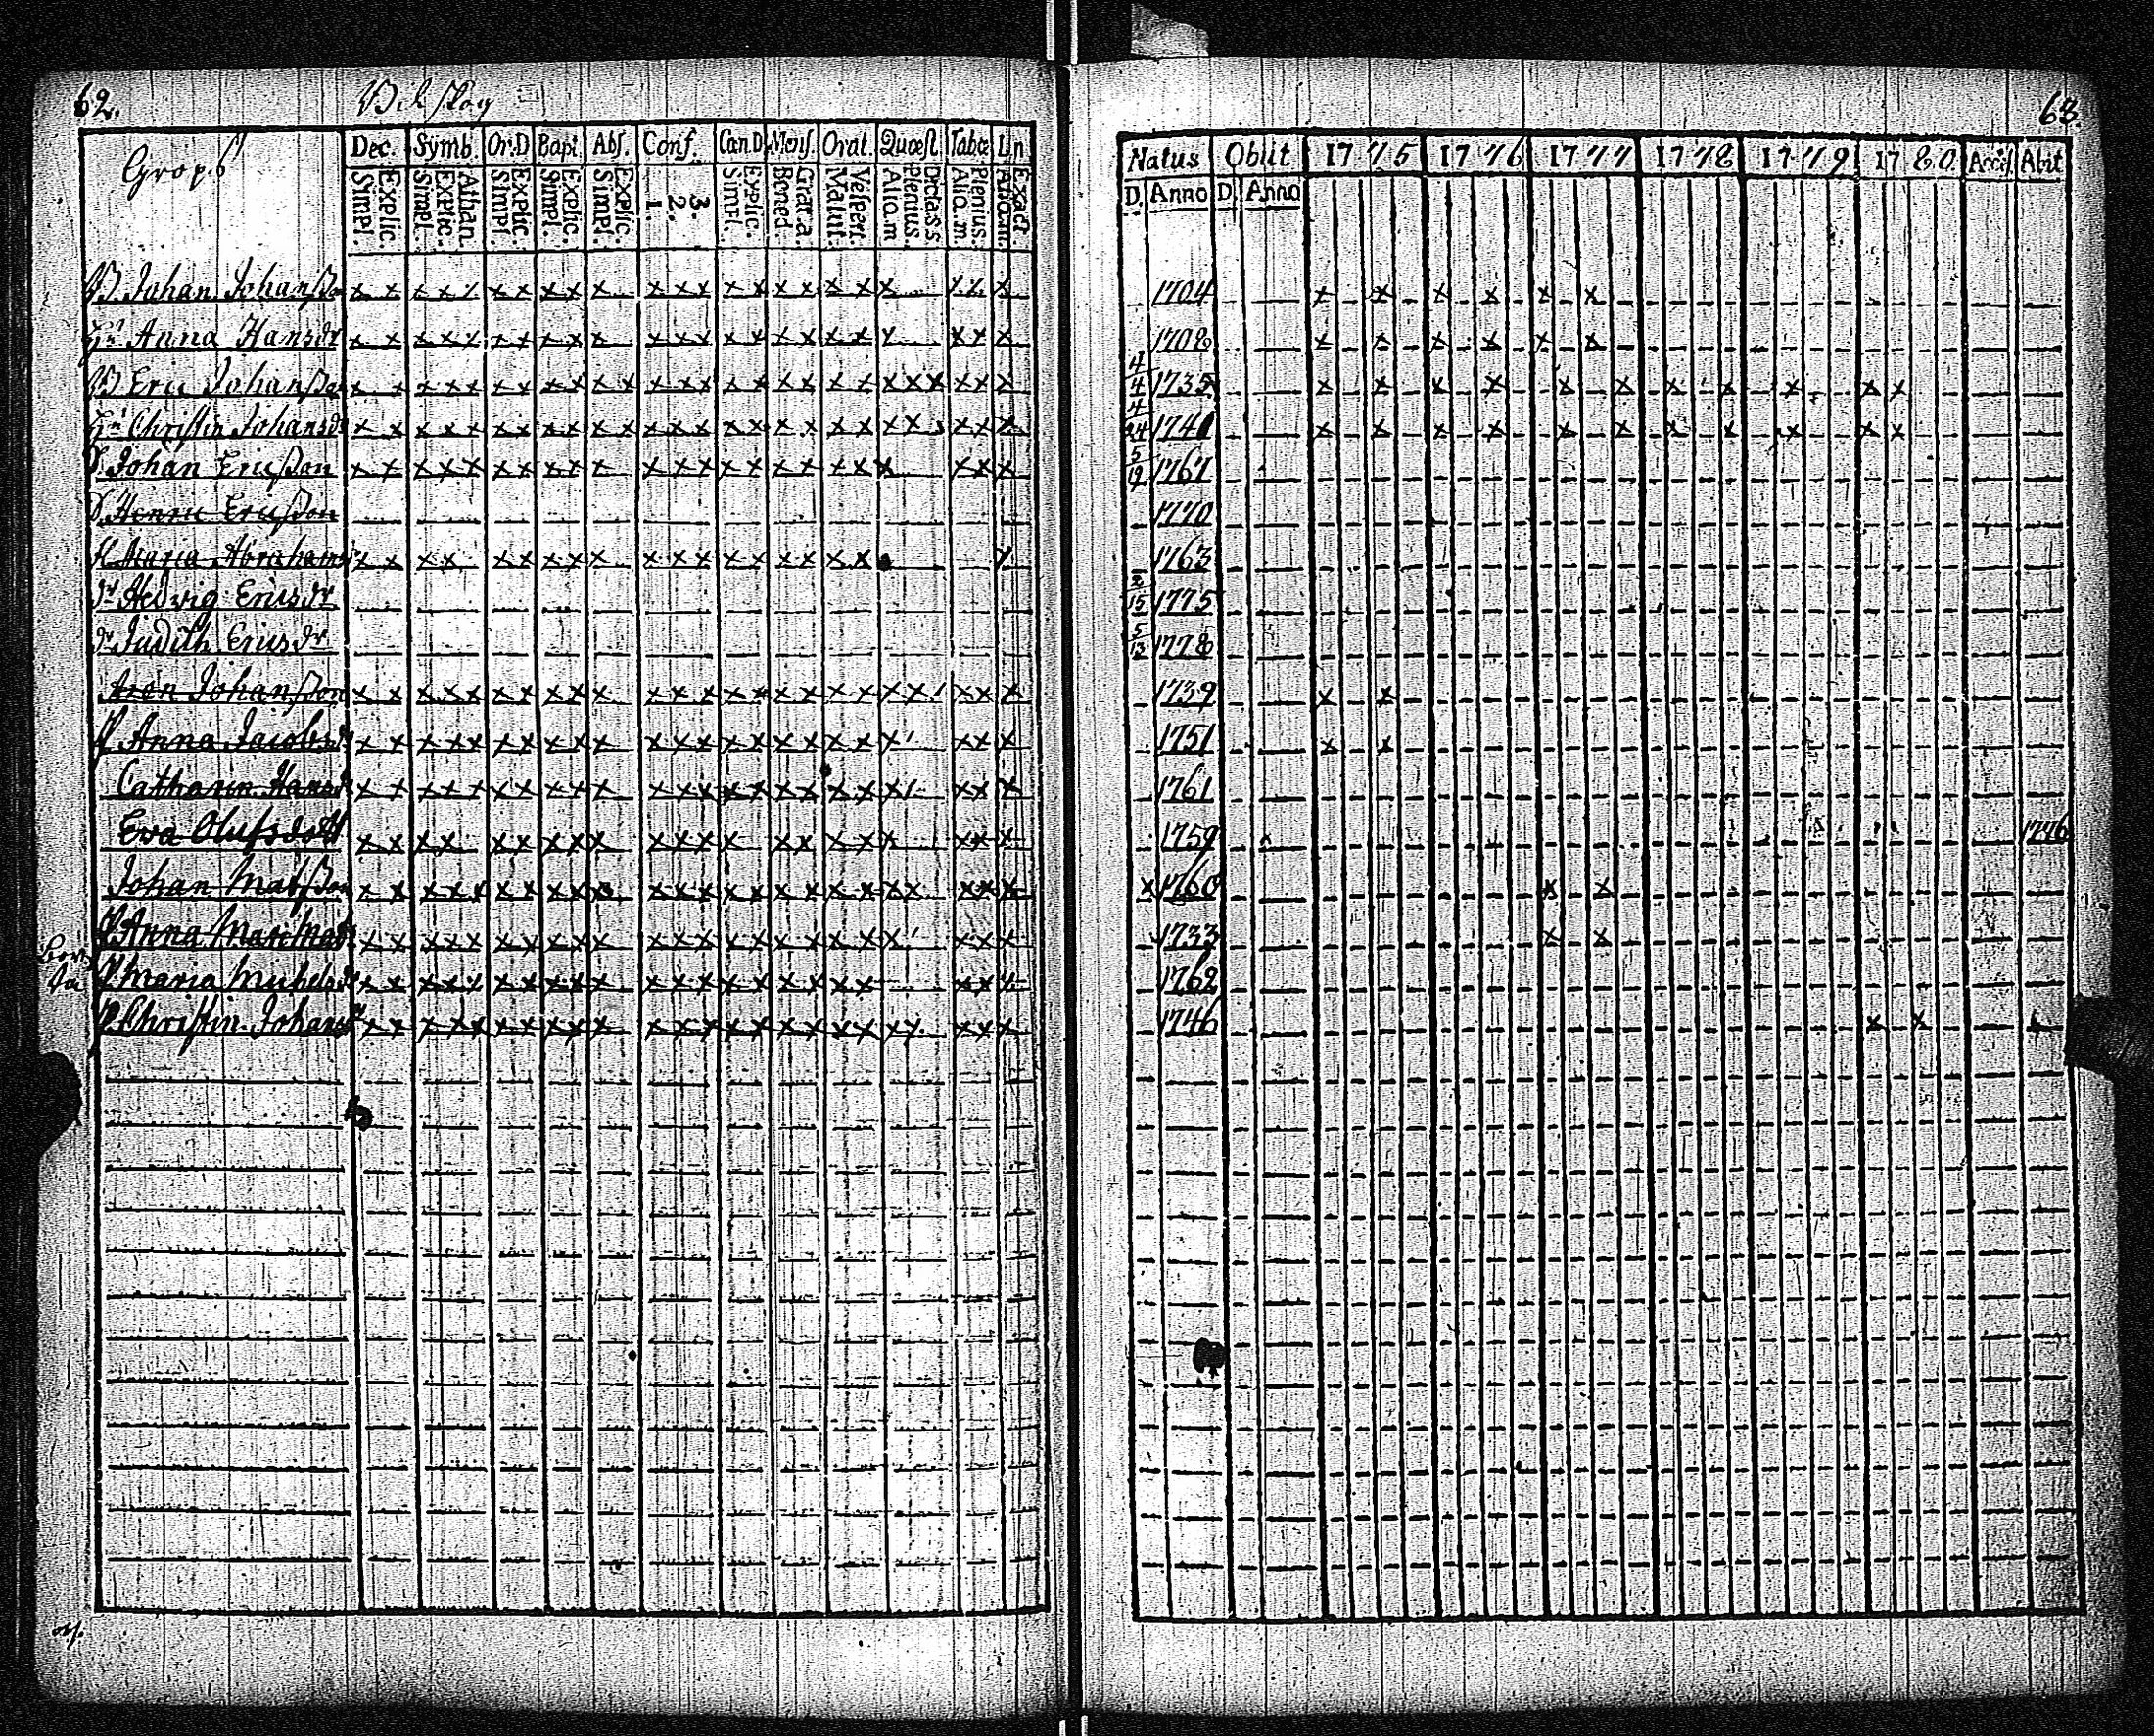 62.
Grop s
Dec. Symb. Or.D Bapt. Abs. Conf. Cæn.D Mens. Orat. Quæst. Tabæ Lin
Simpl. Explic. Simpl. Explic. Athan. Simpl. Explic. Simpl. Explic. Simpl. Explic. 1. 2. 3. Simpl. Explic. Bened. Grat. a. Matut. Vespert. Alio. m Plenius. D:o ass. Alio. m. Plenius. Exact
Johan Johansson x x x x x x x x x x x x x x x x x x x x x x
Anna Hansdr x x x x x x x x x x x x x x x x x x x x x x
B Eric Johansson x x x x x x x x x x x x x x x x x x x x x x x x x
Christin Johansdr x x x x x x x x x x x x x x x x x x x x x x x x x
S. Johan Ericsson x x x x x x x x x x x x x x x x x x x x x x
S. Henric Ericsson
Maria Abrahams x x x x x x x x x x x x x x x x x x x
dr Hedvig Ericsdr
dr Judith Ericsdr
Johansson x x x x x x x x x x x x x x x x x x x x x x x
Anna Jacobsdr x x x x x x x x x x x x x x x x x x x x x x
Catharin Hansdr x x x x x x x x x x x x x x x x x x x x x x
Eva Olufsdott x x x x x x x x x x x x x x x x x x x x
Johan Matsson x x x x x x x x x x x x x x x x x x x x x x x
Anna x x x x x x x x x x x x x x x x x x x x x x
Maria Michelsdr x x x x x x x x x x x x x x x x x x x x x
Christin Johansdr x x x x x x x x x x x x x x x x x x x x x x x
63.
Natus Obiit 1775 1776 1777 1778 1779 1780. Acces. Abiit
D. Anno D. Anno
1704 x x x x x x
1708 x x x x x x
4/4 1735 x x x x x x x x x x x
4/24 1741 x x x x x x x x x x x
5/19 1767
1770
1763
2/15 1775
5/13 1778
1739 x x
1751 x x
1761
1759 1776
x 1760 x x
1733 x x
1762
1746 x x